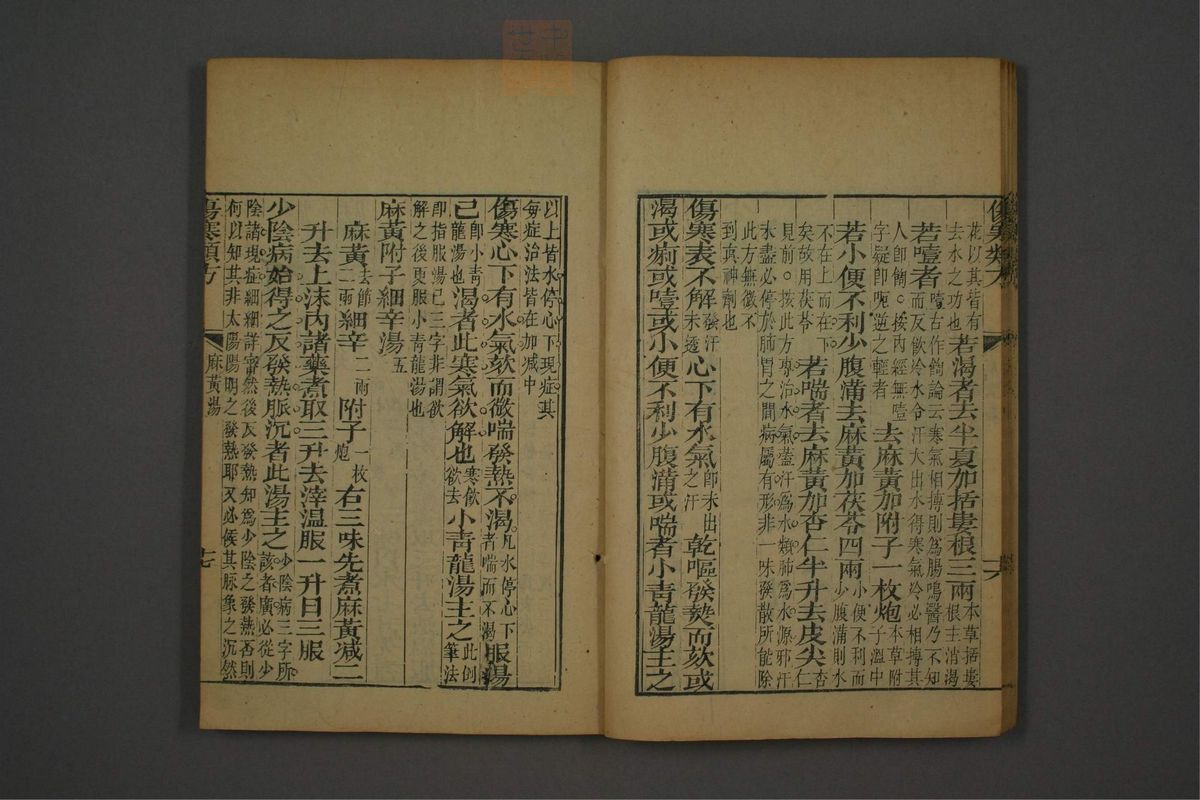 傷寒類方
六
花以其皆有去水之功也若渴者去半夏加括蔞根三兩本草括蔞根主消渴
若噎者噎古作餲論云寒氣相搏則為腸鳴醫乃不知而反飲冷水令汗大出水得寒氣冷必相搏其
人即餲○按內經無噎字疑即呃逆之輕者去麻黃加附子一枚炮本草附子溫中
若小便不利少腹滿去麻黃加茯苓四兩小便不利而少腹滿則水
不在上而在下矣故用茯苓若喘者去麻黃加杏仁半升去皮尖杏仁
見前○按此方專治水氣蓋汗為水類肺為水源邪汗未盡必停於肺胃之間病屬有形非一味發散所能除
此方無微不到真神劑也
傷寒表不解發汗未透心下有水氣即未出之汗乾嘔發熱而欬或
渴或痢或噎或小便不利少腹滿或喘者小青龍湯主之
以上皆水停心下現症其每症治法皆在加減中
傷寒心下有水氣欬而微喘發熱不渴凡水停心下者喘而不渴服湯
已即小青龍湯也渴者此寒氣欲解也寒飲欲去小青龍湯主之此倒筆法
即指服湯已三字非謂欲解之後更服小青龍湯也
麻黃附子細辛湯五
麻黃去節二兩細辛二兩附子一枚炮右三味先煮麻黃減二
升去上沫內諸藥煮取三升去滓溫服一升日三服
少陰病始得之反發熱脈沉者此湯主之少陰病三字所該者廣必從少
陰諸現症細細詳審然後反發熱知為少陰之發熱否則何以知其非太陽陽明之發熱耶又必候其脈象之沉然
傷寒類方
麻黃湯
十七